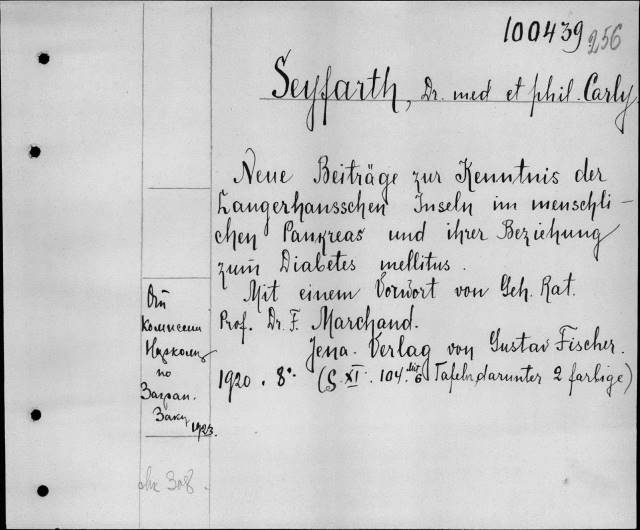 100439 256
Seyfarth, Dr. med et phil. Carly
Neue Beiträge zur Kenntnis der
Langerhansschen Inseln im menschli-
chen Pankreas und ihrer Beziehung
zum Diabetes mellitus.
Mit einem Vorwort von Geh. Rat.
Prof. Dr. F. Marchand.
Jena. Verlag von Gustav Fischer.
1920. 8° (S. XI. 104. mit 6 Tafeln, darunter 2 farbige)
От
Комиссии
по
Загран.
Заку
1923.
308.